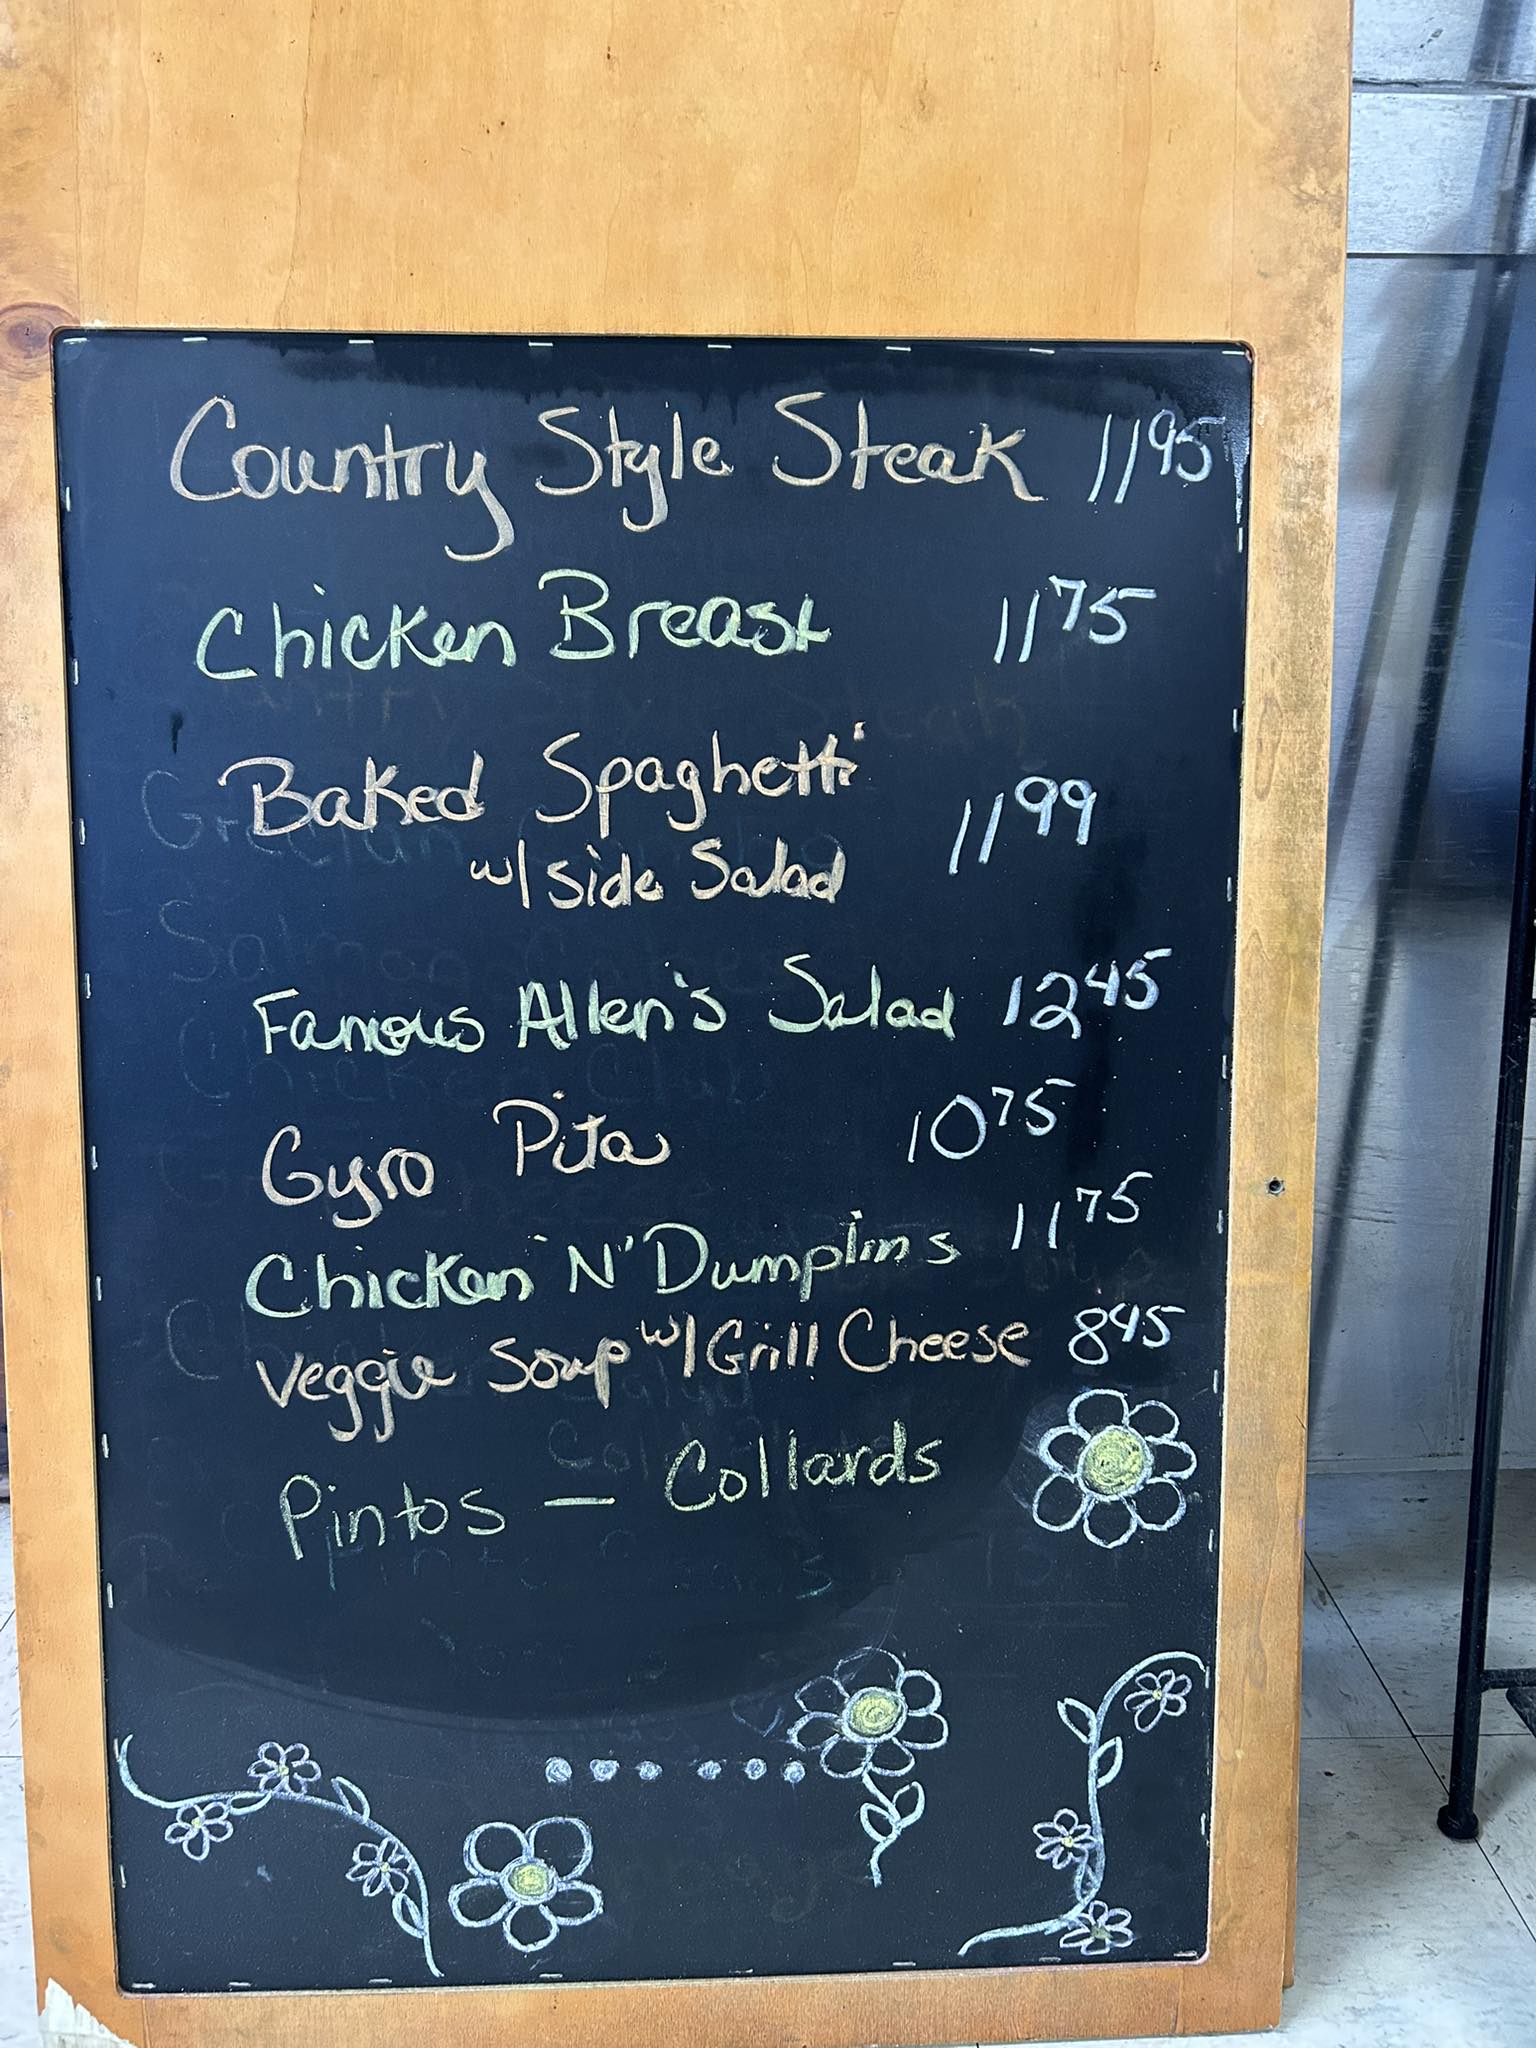 Country Style Steak 11 95
Chicken Breast 11 75
Baked Spaghetti 11 99
w/ Side Salad
Famous Allen's Salad 12 45
Gyro Pita 10 75
Chicken 'N' Dumplins 11 75
Veggie Soup w/ Grill Cheese 8 45
Pintos — Collards